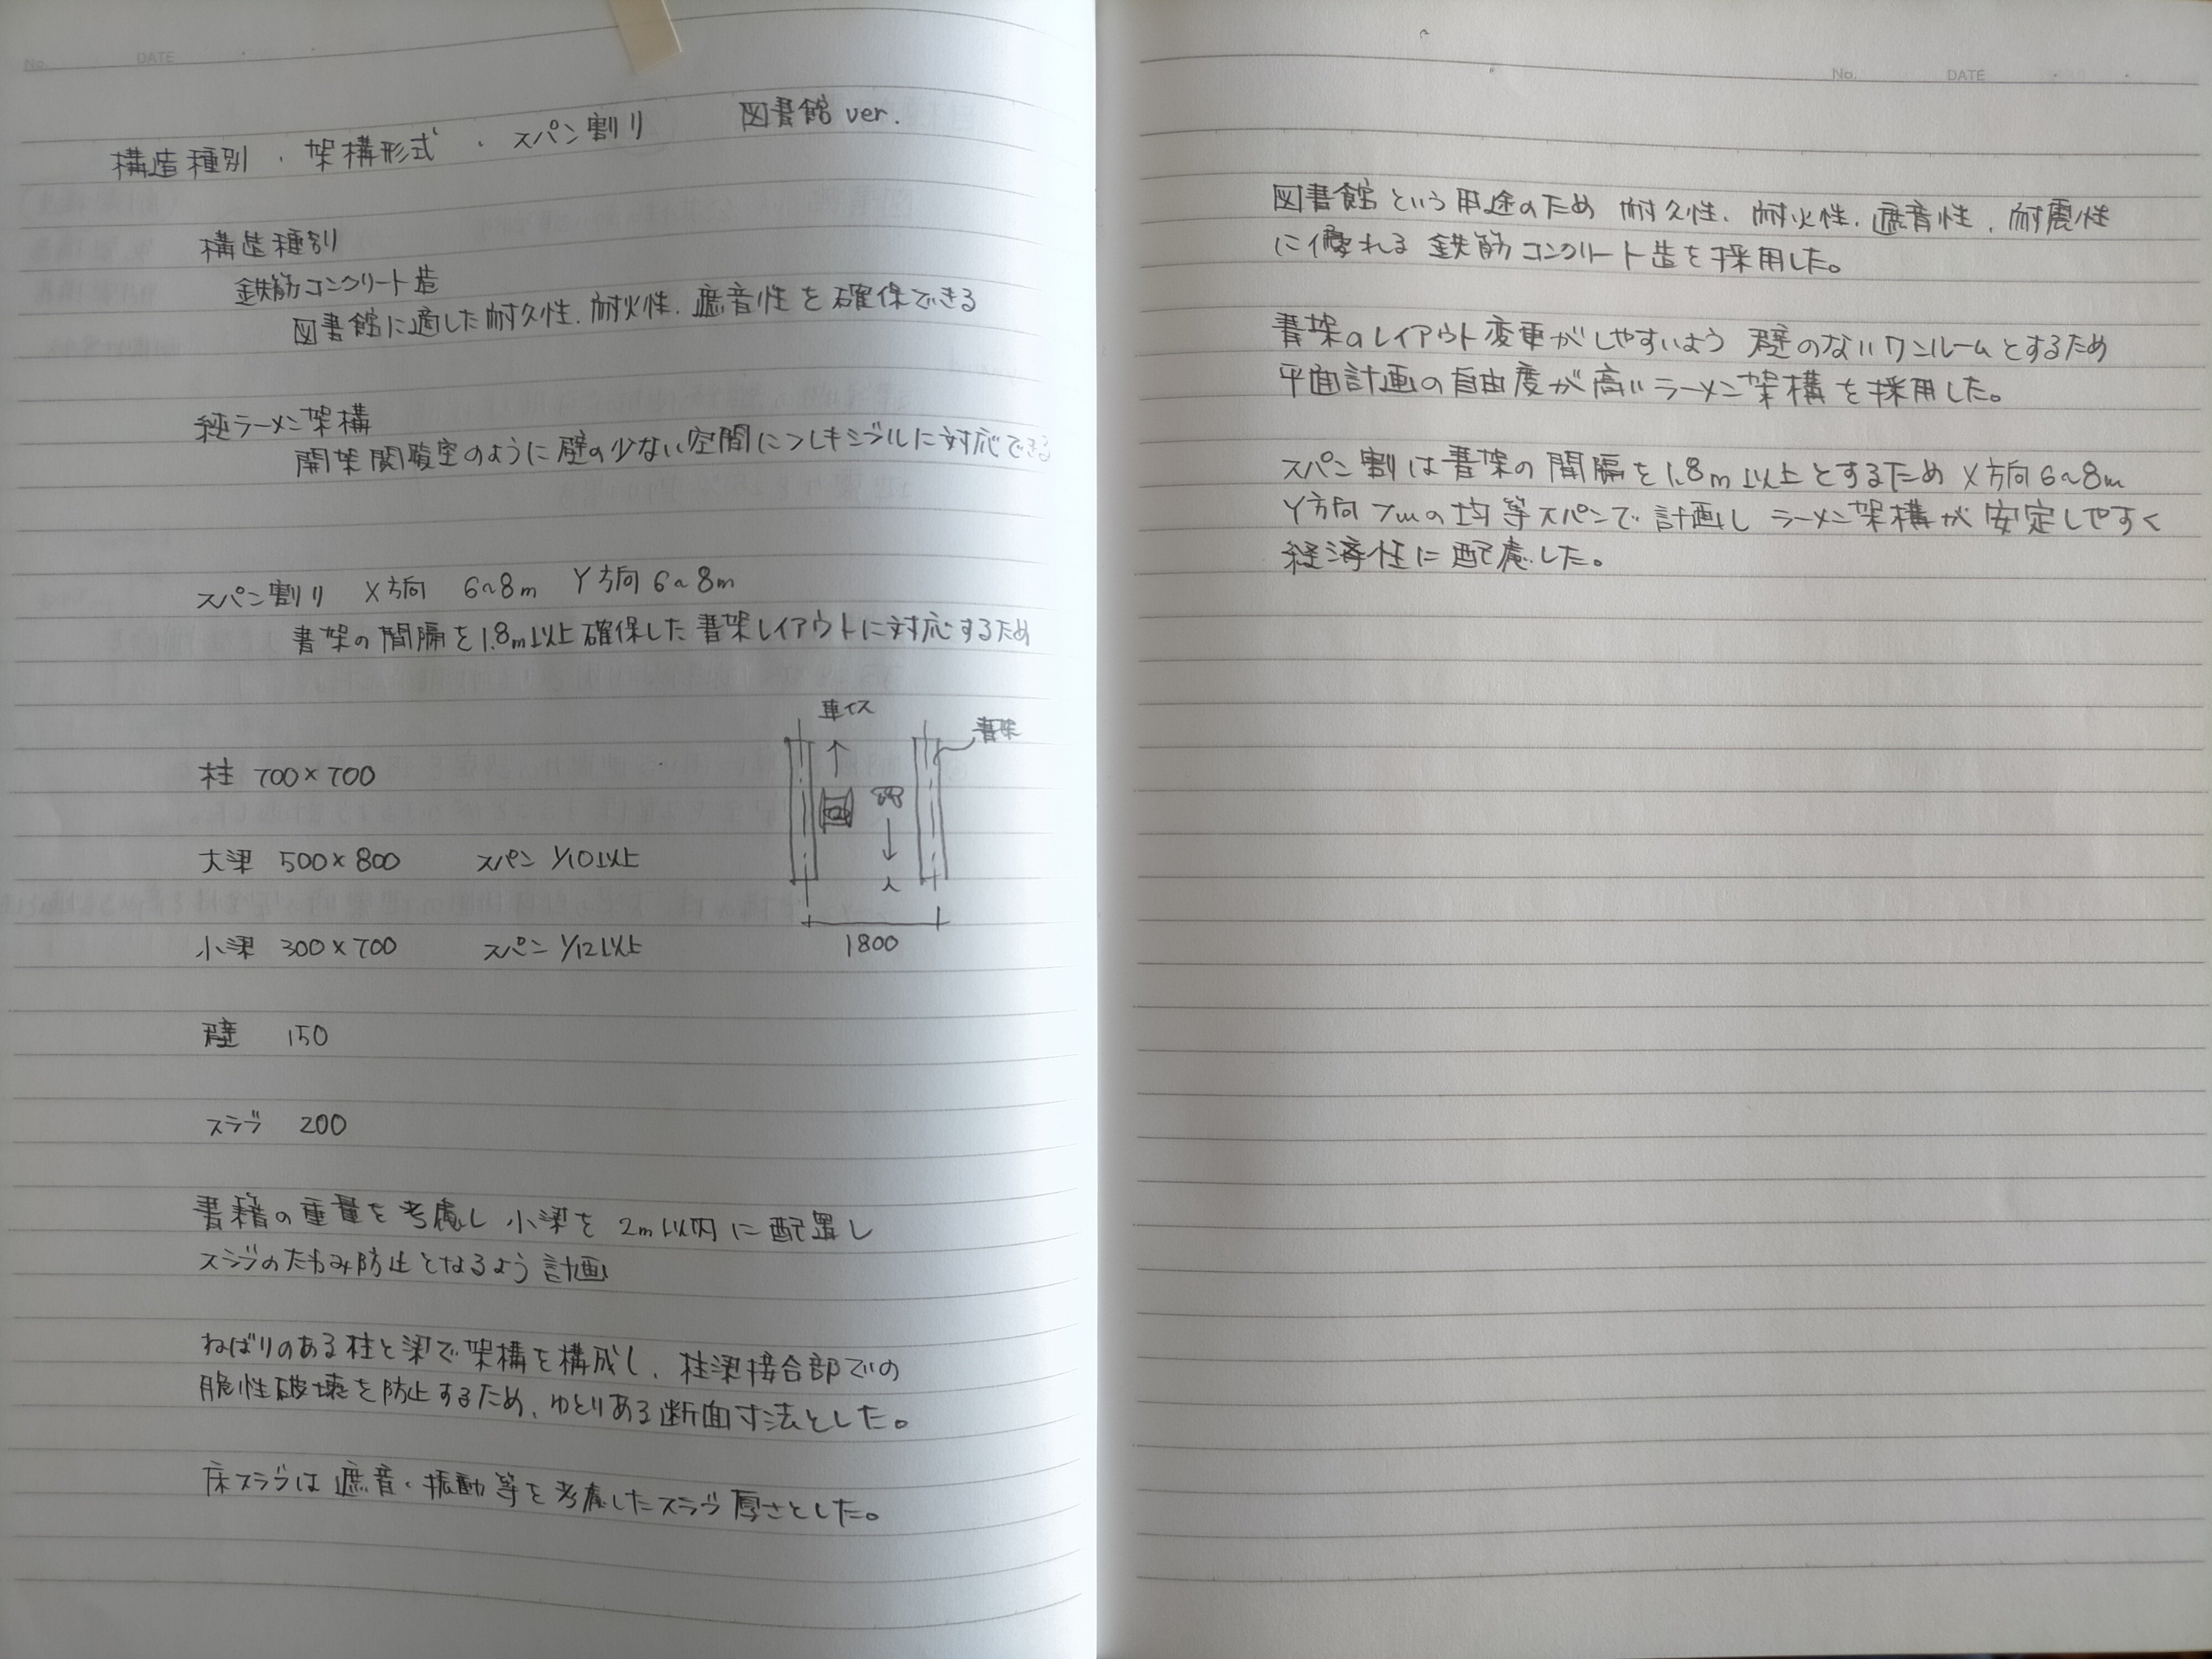 No.
DATE
構造種別 、 架構形式 、 スパン割り 図書館 ver.
構造種別
鉄筋コンクリート造
図書館に適した耐久性、耐火性、遮音性を確保できる
純ラーメン架構
開架閲覧室のように壁の少ない空間にフレキシブルに対応できる
スパン割り X方向 6~8m Y方向 6~8m
書架の間隔を1.8m以上確保した書架レイアウトに対応するため
車イス
書架
柱 700×700
大梁 500×800 スパン 1/10以上
人
1800
小梁 300×700 スパン 1/12以上
壁 150
スラブ 200
書籍の重量を考慮し小梁を 2m以内に配置し
スラブのたわみ防止となるよう計画
ねばりのある柱と梁で架構を構成し、柱梁接合部での
脆性破壊を防止するため、ゆとりある断面寸法とした。
床スラブは遮音・振動等を考慮したスラブ厚さとした。
No.
DATE
図書館という用途のため 耐久性、耐火性、遮音性、耐震性
に優れる 鉄筋コンクリート造を採用した。
書架のレイアウト変更がしやすいよう 壁のないワンルームとするため
平面計画の自由度が高いラーメン架構を採用した。
スパン割は書架の間隔を1.8m以上とするため X方向6~8m
Y方向7mの均等スパンで計画し ラーメン架構が安定しやすく
経済性に配慮した。